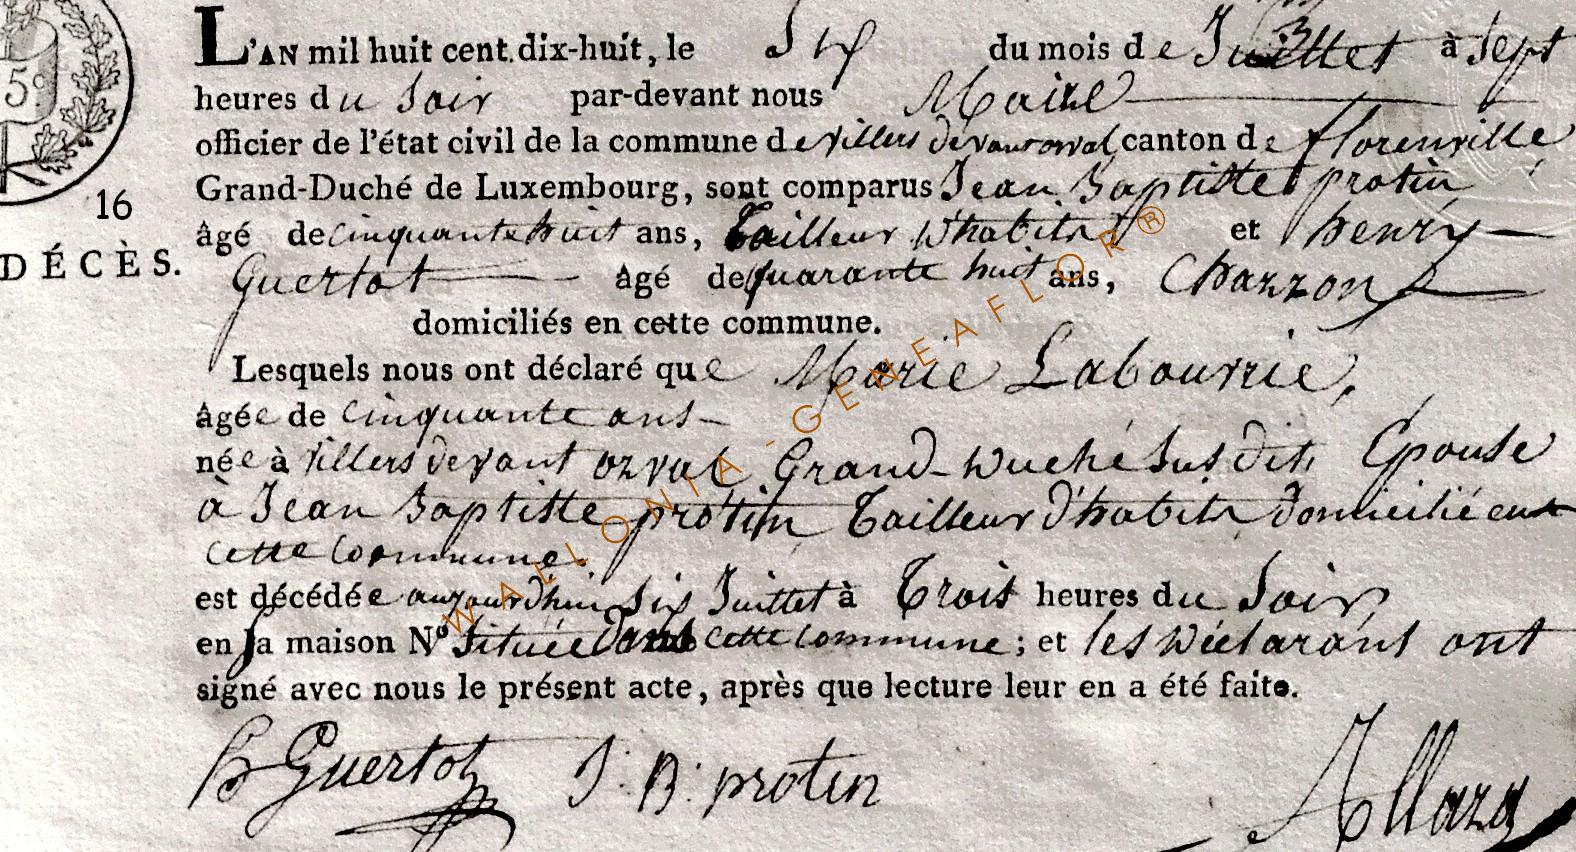 5c
16
DÉCÈS.
L'AN mil huit cent dix-huit, le Six du mois de Juillet à sept
heures du soir par-devant nous Maire
officier de l'état civil de la commune de villers devant orval canton de florenville
Grand-Duché de Luxembourg, sont comparus Jean Baptiste protin
âgé de cinquante huit ans, Tailleur d'habits et henry
Guertot âgé de quarante huit ans, Charron
domiciliés en cette commune.
Lesquels nous ont déclaré que Marie Labourrie,
âgée de cinquante ans
née à villers devant orval Grand-Duché susdit, Epouse
à Jean Baptiste protin Tailleur d'habits domicilié en
cette commune.
est décédée aujourdhui six Juillet à Trois heures du Soir
en sa maison N° située dans cette commune ; et les déclarans ont
signé avec nous le présent acte, après que lecture leur en a été faite.
h Guertot J. B. protin
WALLONIA - GENEAFLOR®